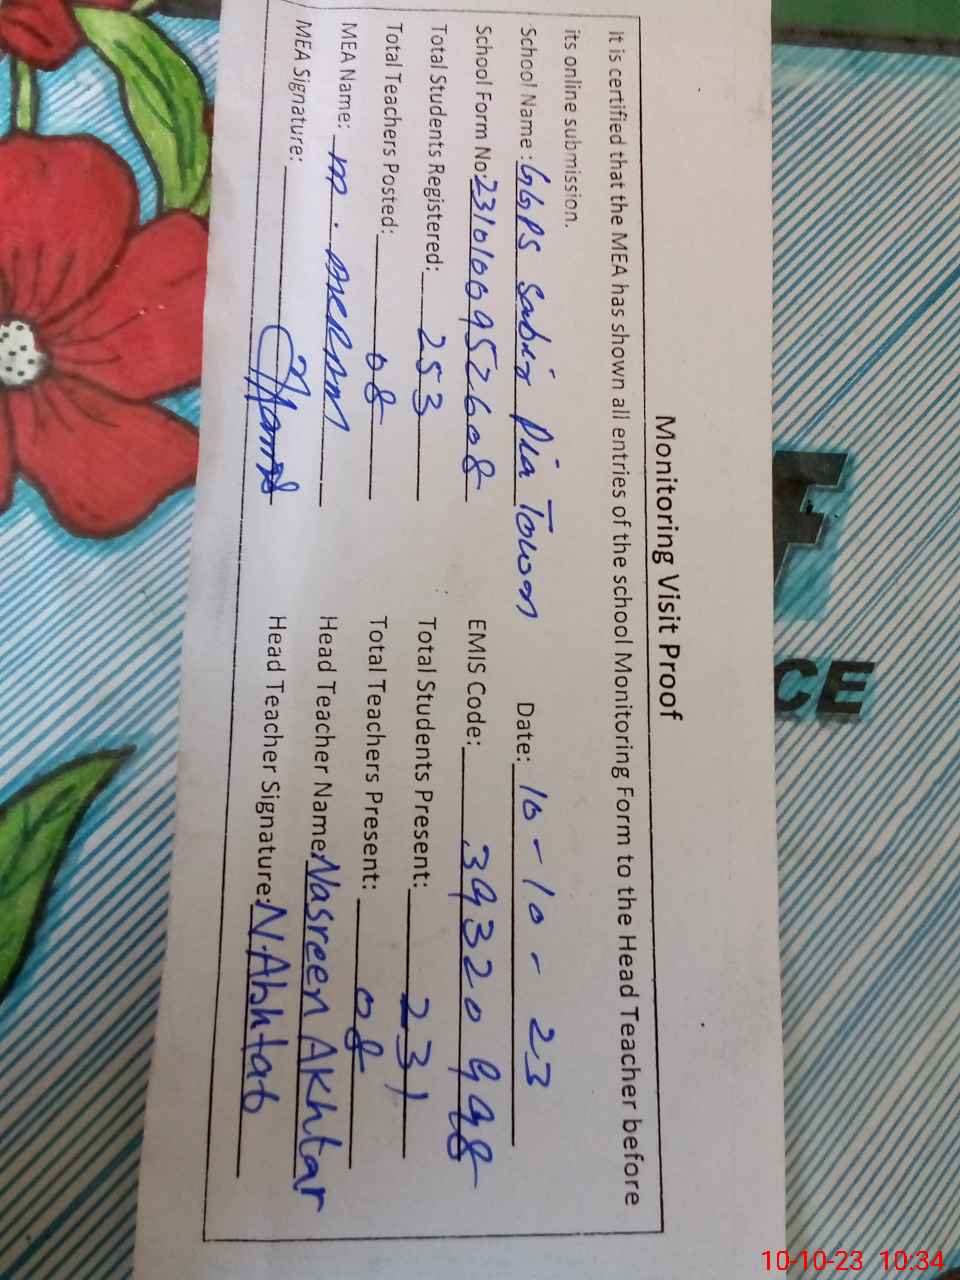 Monitoring Visit Proof
It is certified that the MEA has shown all entries of the school Monitoring Form to the Head Teacher before
its online submission.
School Name: GGPS Sabir Pia Towon Date: 10-10-23
School Form No: 2310100952608 EMIS Code: 39320998
Total Students Registered: 253 Total Students Present: 231
Total Teachers Posted: 08 Total Teachers Present: 08
MEA Name: M. AKRAM Head Teacher Name: Nasreen Akhtar
MEA Signature: Head Teacher Signature: N.Ahhtab
CE
10-10-23 10:34